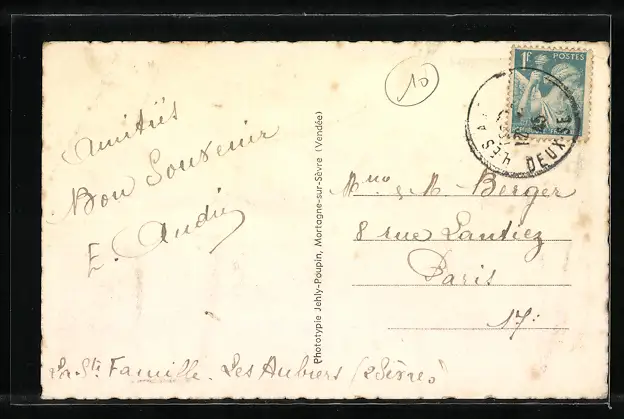 10
1F
POSTES
Amitiés
Bon Souvenir
E. André
Mme & M. Berger
8 rue Lantiez
Paris
17:
Phototypie Jehly-Poupin, Mortagne-sur-Sèvre (Vendée)
La Ste Famille. Les Aubiers (2 Sèvres)
LES A
DEUX-